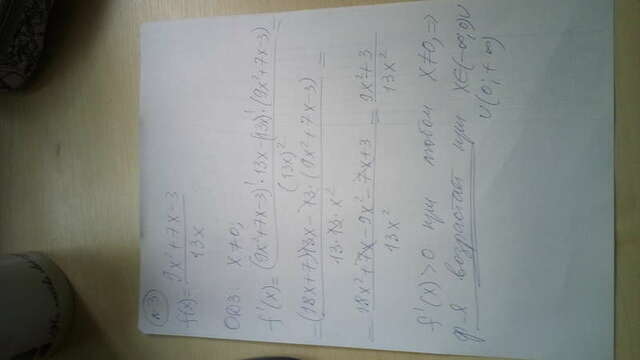 №3
f(x)= 9x²+7x-3 / 13x
ОДЗ: x≠0;
f'(x)= (9x²+7x-3)'·13x-(13x)'·(9x²+7x-3) / (13x)² =
= (18x+7)13x-13·(9x²+7x-3) / 13·13·x² =
= 18x²+7x-9x²-7x+3 / 13x² = 9x²+3 / 13x²
f'(x)>0 при любом x≠0, ⇒
ф-я возрастает при x∈(-∞;0)∪
∪(0;+∞)